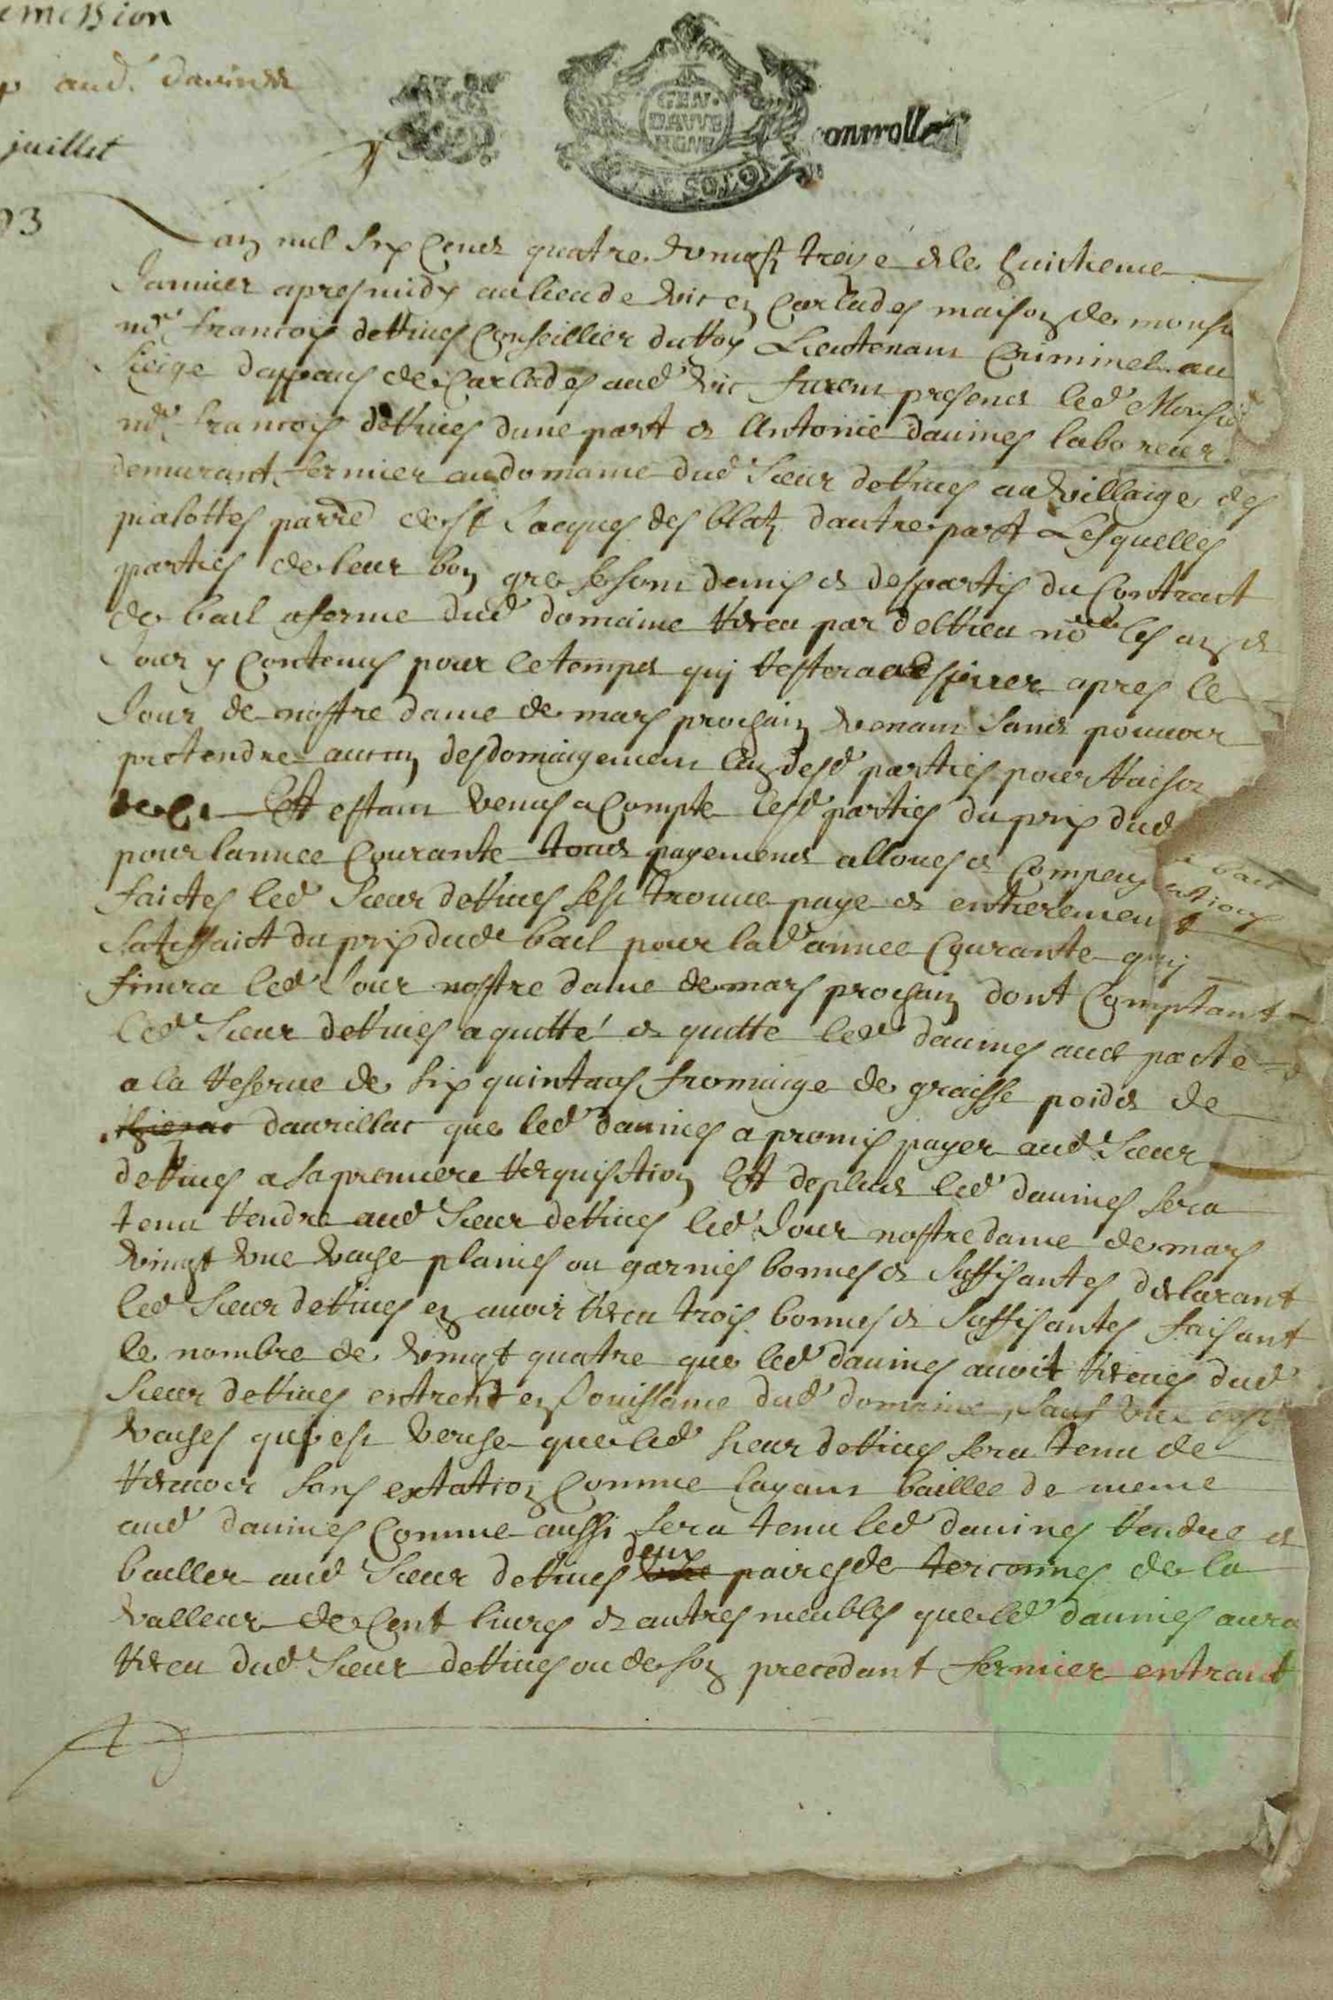 emission
aud. daumes
juillet
93
GEN.
DAUVE
RGNE
controlle
Lan mil six Cens quatre vingt treze & le huictieme
Janvier apres midy au lieu de vic en Carlades maison de monsr
me francois detrues Conseillier du Roy Lieutenant Criminel au
siege dappeaus de Carlades aud vic furent presens led Monsie
me francois detrues dune part & Antonie daumes laboreur
demurant fermier au domaine dud sieur detrues au villaige des
pialottes parre de st Jacques des blatz dautre part Lesquelles
parties de leur bon gre se sont demis & despartis du Contract
de bail a ferme dud domaine Receu par delrieu nore les an &
Jour y Contenus pour le temps quj Restera a expirer apres le
Jour de nostre dame de mars prochain venant sans pouvoir
pretendre aucun desdomaigement lun desd parties pour Raison
de Ce Et estant venus a Compte lesd parties du prix dud bail
pour lannee Courante tous payemens alloues & Compensations
faictes led sieur detrues sest trouve paye & entierement
satisfaict du prix dud bail pour lad annee Courante quj
finira led Jour nostre dame de mars prochain dont Comptant
led sieur detrues a quitte & quitte led daumes avec pacte
a la Reserve de six quintaus fromaige de graisse poidz de
daurillac que led daumes a promis payer aud sieur
detrues a sa premiere Requisition Et de plus led daumes sera
tenu Rendre aud sieur detrues led Jour nostre dame de mars
vingt une vache plaines ou garnies bonnes & suffisantes declarant
led sieur detrues en avoir Receu trois bonnes & suffisantes faisant
le nombre de vingt quatre que led daumes avoit Receues dud
sieur detrues entrent en Jouissance dud domaine, sauf une desd
vaches quj est berche que led sieur detrues sera tenu de
Recevoir sans extation Comme layant baillee de meme
aud daumes Comme aussi sera tenu led daumes Rendre &
bailler aud sieur detrues deux paires de terconnes de la
valleur de Cent livres & autres meubles que led daumes aura
Receu dud sieur detrues ou de son precedant fermier entrant